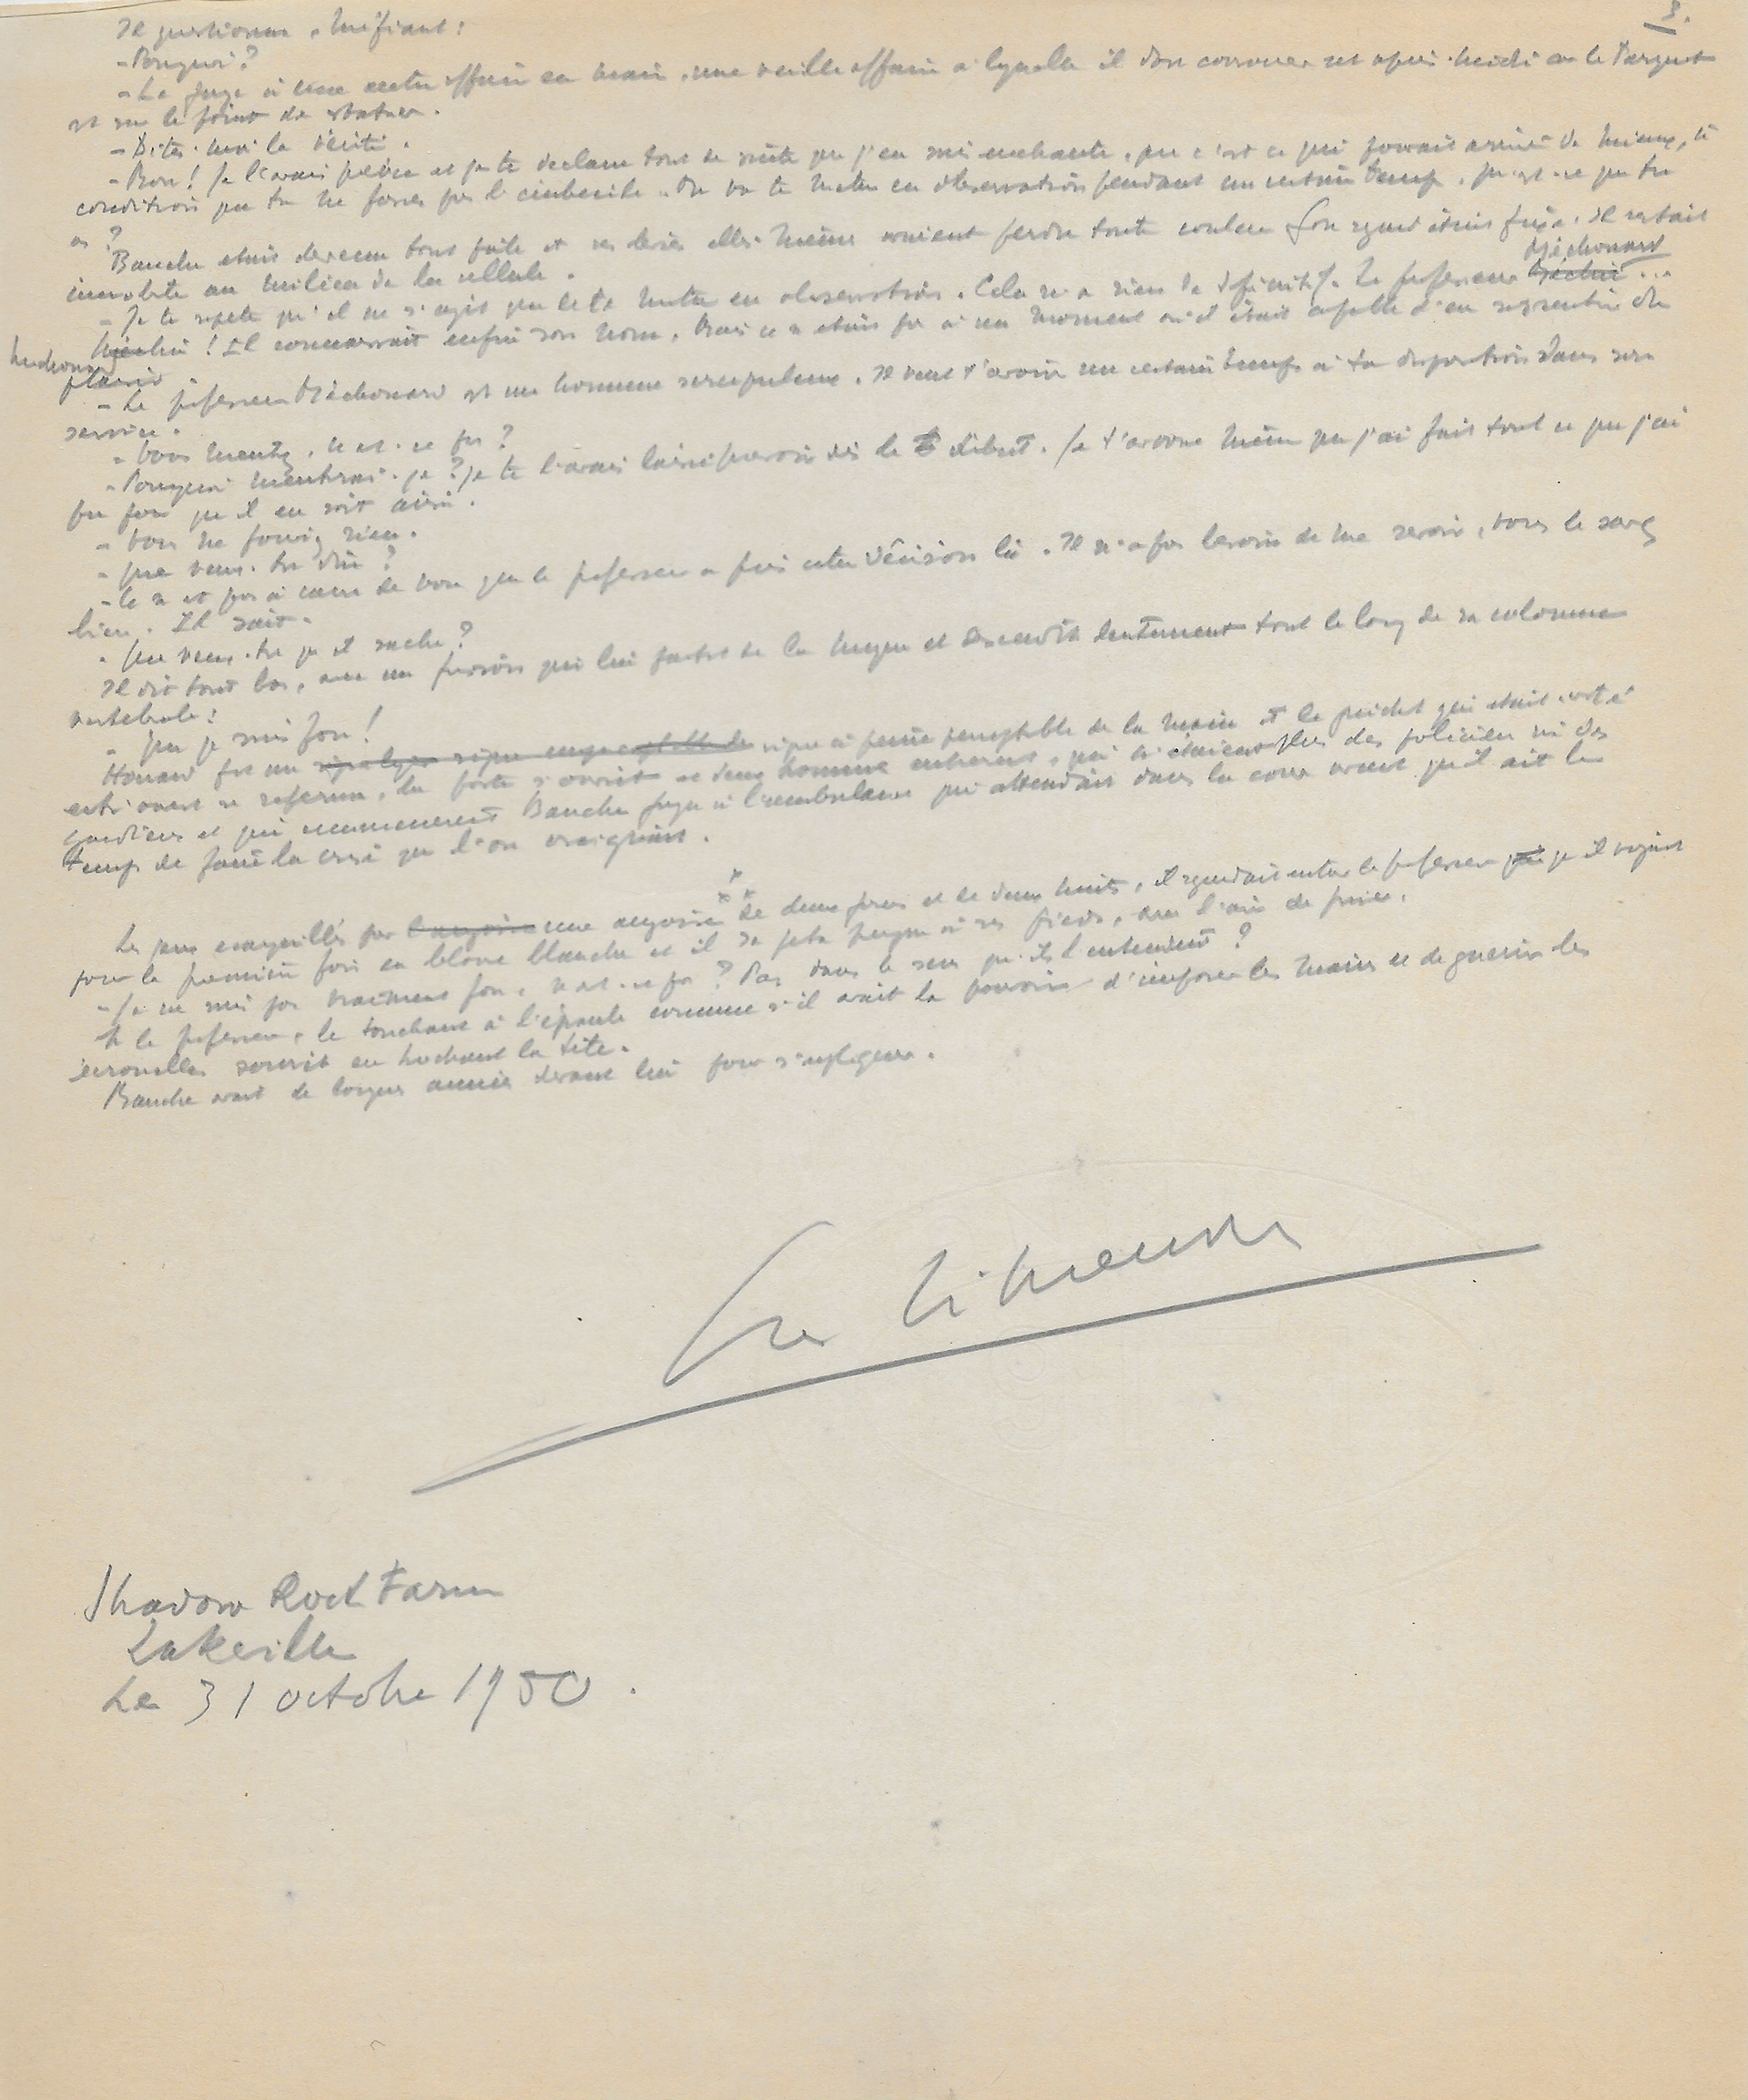 3.
Il questionna, méfiant :
- Pourquoi ?
- Le juge a une autre affaire en main, une vieille affaire à laquelle il doit consacrer cet après-midi car le Parquet
est sur le point de statuer.
- Dites-moi la vérité.
- Bon ! Je l'avais prévu et je te déclare tout de suite que j'en suis enchanté, que c'est ce qui pouvait arriver de mieux, à
condition que tu ne fasses pas l'imbécile. On va te mettre en observation pendant un certain temps. Qu'est-ce que tu
as ?
Bauche était devenu tout pâle et ses lèvres elles-mêmes avaient perdu toute couleur. Son regard était fixe. Il restait
immobile au milieu de la cellule.
Méchouard
- Je te répète qu'il ne s'agit que de te mettre en observation. Cela n'a rien de définitif. Le professeur ...
Méchouard
! Il connaissait enfin son nom. Mais ce n'était pas à un moment où il était capable d'en ressentir du
plaisir
- Le professeur Méchouard est un homme scrupuleux. Il veut t'avoir un certain temps à sa disposition dans son
service.
- Vous mentez, n'est-ce pas ?
- Pourquoi mentirais-je ? Je te l'avais laissé prévoir dès le début. Je t'avoue même que j'ai fait tout ce que j'ai
pu pour qu'il en soit ainsi.
- Vous ne pouviez rien.
- Que veux-tu dire ?
- Ce n'est pas à cause de vous que le professeur a pris cette décision là. Il n'a pas besoin de me revoir, vous le savez
bien. Il sait.
- Que veux-tu qu'il sache ?
Il dit tout bas, avec un frisson qui lui partit de la nuque et descendit lentement tout le long de sa colonne
vertébrale :
- Que je suis fou !
Houard fit un signe à peine perceptible de la main et le guichet qui était resté
entr'ouvert se referma, la porte s'ouvrit et deux hommes entrèrent, qui n'étaient plus des policiers ni des
gardiens et qui emmenèrent Bauche jusqu'à l'ambulance qui attendait dans la cour avant qu'il ait le
temps de faire la crise que l'on craignait.
* * *
Les yeux écarquillés par une angoisse de deux jours et de deux nuits, il regardait entrer le professeur qu'il voyait
pour la première fois en blouse blanche et il se jeta presque à ses pieds, avec l'air de prier.
- Je ne suis pas vraiment fou, n'est-ce pas ? Pas dans le sens qu'ils l'entendent ?
Et le professeur, le touchant à l'épaule comme s'il avait le pouvoir d'imposer les mains et de guérir les
écrouelles sourit en hochant la tête.
Bauche avait de longues années devant lui pour s'expliquer.
Shadow Rock Farm
Lakeville
Le 31 octobre 1950.